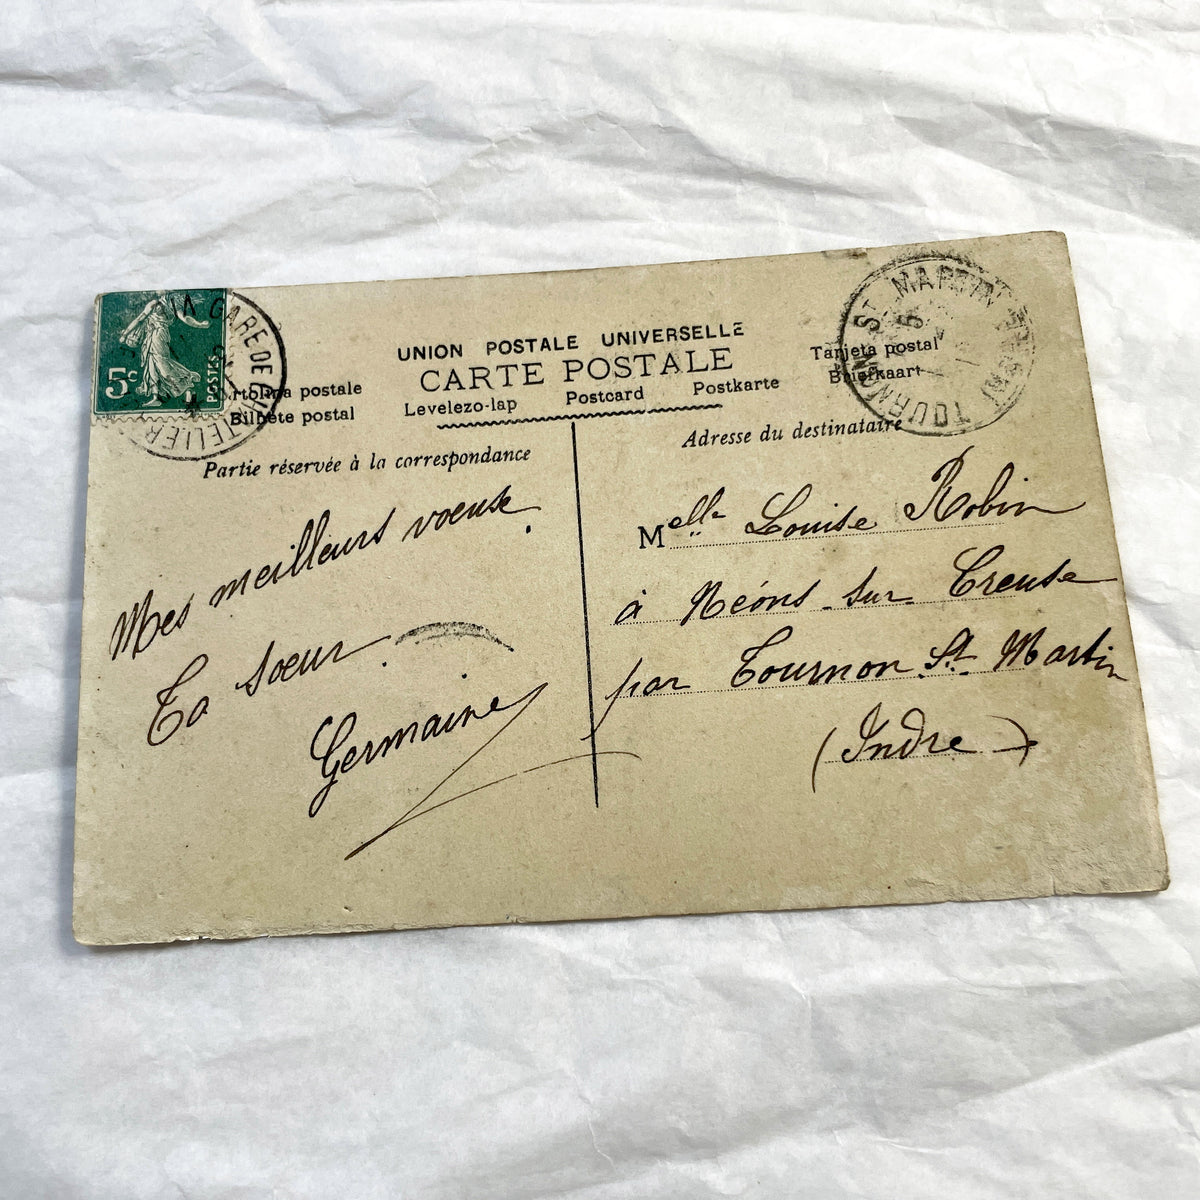 5c
POSTES
GARE DE CHATELLER
TOURNON ST MARTIN INDRE
UNION POSTALE UNIVERSELLE
CARTE POSTALE
rtolina postale Levelezo-lap Postcard Postkarte Tarjeta postal
Bilhete postal Briefkaart
Partie réservée à la correspondance
Mes meilleurs voeux.
Ta soeur.
Germaine
Adresse du destinataire
Melle Louise Robin
à Néons sur Creuse
par Tournon St Martin
(Indre)